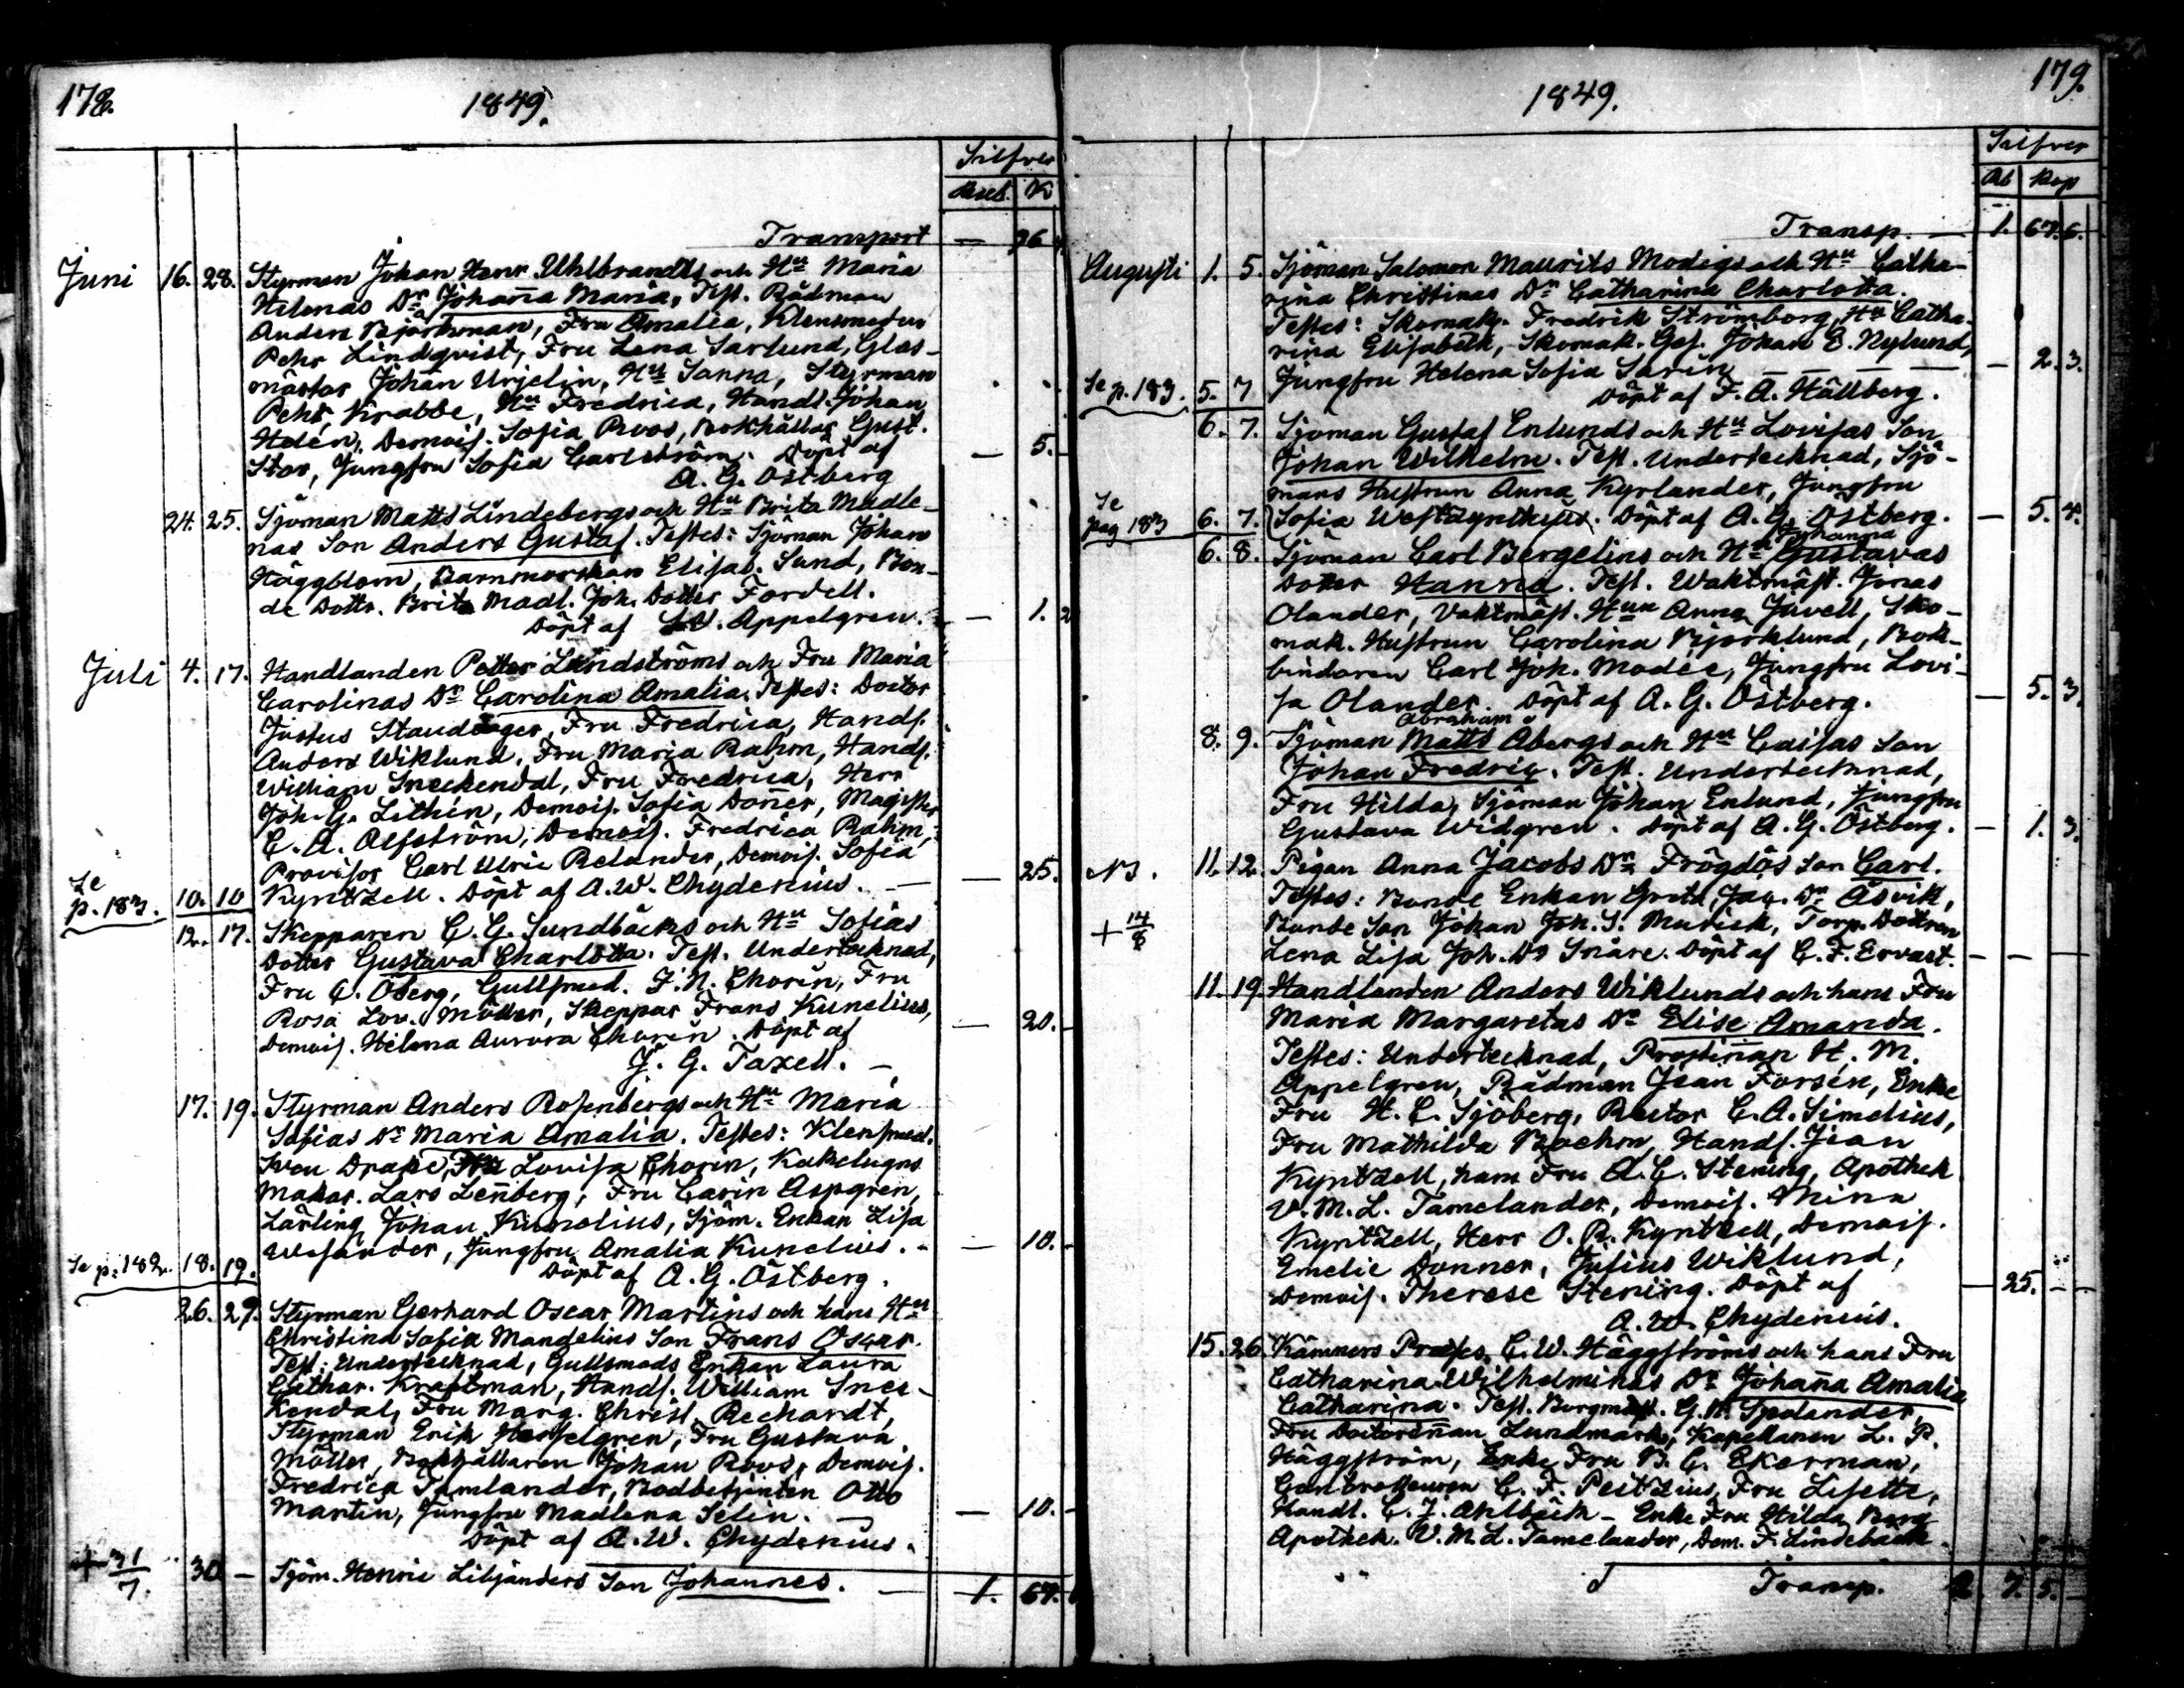 178.
1849.
Silfver
Rub. K
Transport — 96
Juni 16. 28. Styrman Johan Henr Uhlbrandts och Hu Maria
Helenas Dr Johan̄a Maria, Test. Rådman
Anders Björkman, Fru Amalia, Klensmeden
Pehr Lindqvist, Fru Lena Sarlund, Glas-
mästar Johan Urjelin, Hu Sanna, Styrman
Pehr Krabbe, Hu Fredrica, Handl. Johan
Helén, Demois. Sofia Roos, Bokhållar Gust.
Stor, Jungfru Sofia Carlström. Döpt af — 5. –
A. G. Östberg
24. 25. Sjöman Matts Lindebergs och Hu Brita Madle-
nas Son Anders Gustaf. Testes: Sjöman Johan
Häggblom, Barnmorskan Elisab. Sund, Bon-
de Dottr. Brita Madl. Joh. Dotter Fordell.
Döpt af Appelgren. — 1. 2
Juli 4. 17. Handlanden Petter Lundströms och Fru Maria
Carolinas Dr Carolina Amalia. Testes: Doctor
Justus Staudinger, Fru Fredrica, Handl.
Anders Wiklund, Fru Maria Rahm, Handl.
William Sneckendal, Fru Fredrica, Herr
Joh. G. Lithén, Demois. Sofia Don̄er, Magister
C. A. Alfström, Demois. Fredrica Rahm,
Provisor Carl Ulric Relander, Demois. Sofia
Kyntzell. Döpt af A. W. Chydenius. — — 25. –
Se p. 183. 10. 10
12. 17. Skepparen C. G. Sundbäcks och Hu Sofias
Dotter Gustava Charlotta. Test. Undertecknad,
Fru C. Öberg, Gullsmed. J. N. Chorin, Fru
Rosa Lov. Möller, Skeppar Frans Kunelius,
Demois. Helena Aurora Chorin. Döpt af — 20. –
J. G. Taxell. —
17. 19. Styrman Anders Rosenbergs och Hu Maria
Sofias Dr Maria Amalia. Testes: Klensmed.
Sven Drake, Fru Lovisa Chorin, Kakelugns
makar. Lars Len̄berg, Fru Carin Aspgren,
Lärling Johan Kunelius, Sjöm. Enkan Lisa
Wefander, Jungfru Amalia Kunelius. — 10. –
Se p. 182. 18. 19.
Döpt af A. G. Östberg.
26. 29. Styrman Gerhard Oscar Martins och hans Hu
Christina Sofia Mandelius Son Frans Oscar.
Test: Undertecknad, Gullsmeds Enkan Laura
Cathar. Kraftman, Handl. William Snec-
kendal, Fru Marg. Christ. Rechardt,
Styrman Erik Hasselgren, Fru Gustava
Möller, Bokhållaren Johan Roos, Demois.
Fredrica Tamlander, Bodbetjenten Otto
Martin, Jungfru Madlena Selin. — — 10. –
Döpt af A. W. Chydenius.
+ 31/7. 30 – Sjöm. Henric Liljanders Son Johannes. — 1. 67.
1849.
179.
Silfver
Rb Kop
Transp. — 1. 67. 6.
Augusti 1. 5. Sjöman Salomon Maurits Modigs och Hu Catha-
rina Christinas Dr Catharina Charlotta.
Testes: Skomak. Fredrik Strömborg, Hu Catha-
rina Elisabeth, Skomak. Ges. Johan E. Nylund,
Jungfru Helena Sofia Sarin — — — — 2. 3.
Se p. 183. 5. 7
Döpt af F. A. Hällberg.
6. 7. Sjöman Gustaf Enlunds och Hu Lovisas Son
Johan Wilhelm. Test. Undertecknad, Sjö-
mans Hustrun Anna Kyrlander, Jungfru
Se pag 183 6. 7. Sofia Westdynthius. Döpt af A. G. Östberg. — 5. 4.
Johanna
6. 8. Sjöman Carl Bergelins och Hu Gustavas
Dotter Hanna. Test. Waktmäst. Jonas
Olander, Vaktmäst. Hun Anna Juvell, Sko-
mak. Hustrun Carolina Björklund, Bok-
bindaren Carl Joh. Modée, Jungfru Lovi-
sa Olander. Döpt af A. G. Östberg. — 5. 3.
Abraham
8. 9. Sjöman Matts Åbergs och Hu Caisas Son
Johan Fredric. Test. Undertecknad,
Fru Hilda, Sjöman Johan Enlund, Jungfru
Gustava Widgren. Döpt af A. G. Östberg. — 1. 3.
NB. 11. 12. Pigan Anna Jacobs Dr Frögdös Son Carl.
Testes: Bonde Enkan Greta Jac. Dr Åsvik,
+ 14/8 Bonde Son Johan Joh. S. Murick, Torp. Dottren
Lena Lisa Joh. Dr Snåre. Döpt af C. F. Ervast. — —
11. 19. Handlanden Anders Wiklunds och hans Fru
Maria Margaretas Dr Elise Amanda.
Testes: Undertecknad, Prostin̄an H. M.
Appelgren, Rådman Jean Forsén, Enke
Fru H. C. Sjöberg, Rector C. A. Simelius,
Fru Mathilda Boehm, Handl. Jean
Kyntzell, hans Fru A. C. Stening, Apothek
V. M. L. Tamelander, Demois. Mina
Kyntzell, Herr O. R. Kyntzell, Demois.
Emelie Donner, Julius Wiklund,
Demois. Therese Stening. Döpt af — 25. – –
A. W. Chydenius.
15. 26. Kämners Præses C. W. Häggströms och hans Fru
Catharina Wilhelminas Dr Johan̄a Amalia
Catharina. Test. Borgmäst. G. N. Spolander,
Fru Doctorin̄an Lundmark, Kapellanen L. P.
Häggström, Enke Fru B. C. Ekerman,
Controlleuren C. F. Peitzius, Fru Lisette,
Handl. C. J. Ahlbäck – Enke Fru Hilda Berg
Apothek. V. M. L. Tamelander, Dem. F. Lindebäck.
Transp. 2. 7. 5.